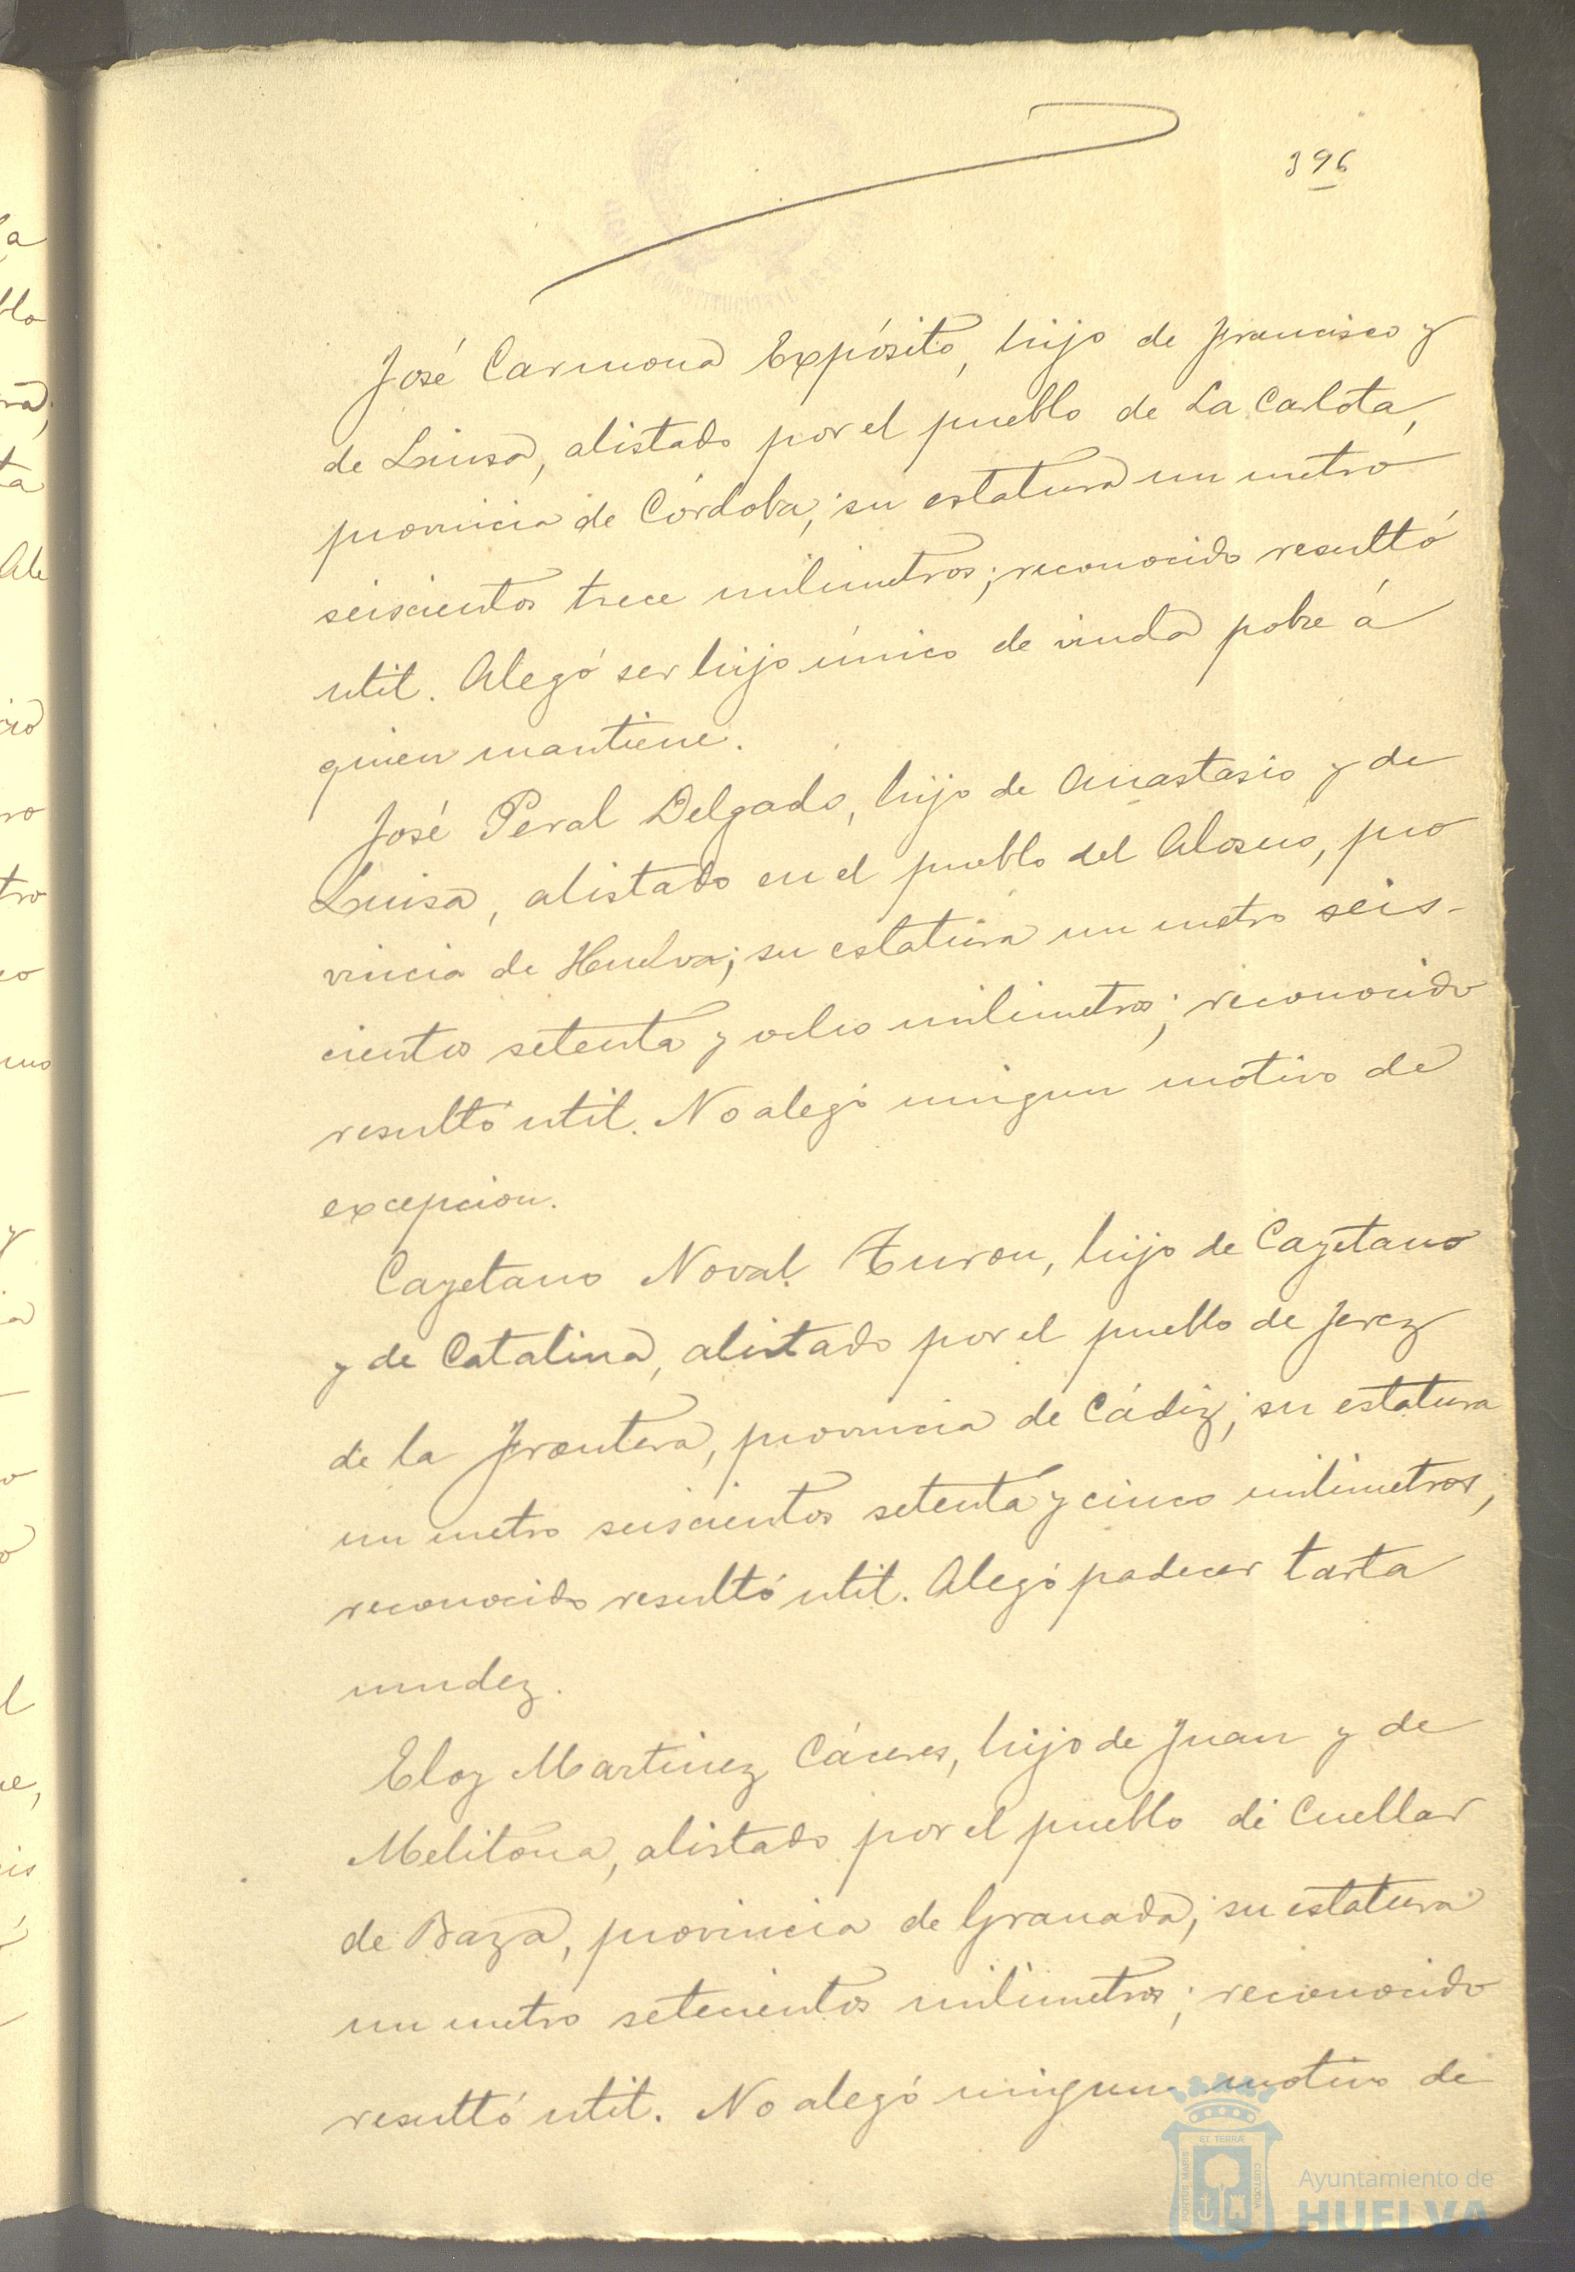 396
José Carmona Expósito, hijo de Francisco y
de Luisa, alistado por el pueblo de La Carlota,
provincia de Córdoba; su estatura un metro
seiscientos trece milimetros; reconocido resultó
util. Alegó ser hijo único de viuda pobre á
quien mantiene.
José Peral Delgado, hijo de Anastasio y de
Luisa, alistado en el pueblo del Alosno, pro
vincia de Huelva; su estatura un metro seis-
cientos setenta y ocho milimetros; reconocido
resultó util. No alegó ningun motivo de
excepcion.
Cayetano Noval Turon, hijo de Cayetano
y de Catalina, alistado por el pueblo de Jerez
de la Frontera, provincia de Cádiz; su estatura
un metro seiscientos setenta y cinco milimetros,
reconocido resultó util. Alegó padecer tarta
mudez.
Eloy Martinez Cáceres, hijo de Juan y de
Melitona, alistado por el pueblo de Cuellar
de Baza, provincia de Granada; su estatura
un metro setecientos milimetros; reconocido
resultó util. No alegó ningun motivo de
Ayuntamiento de
HUELVA